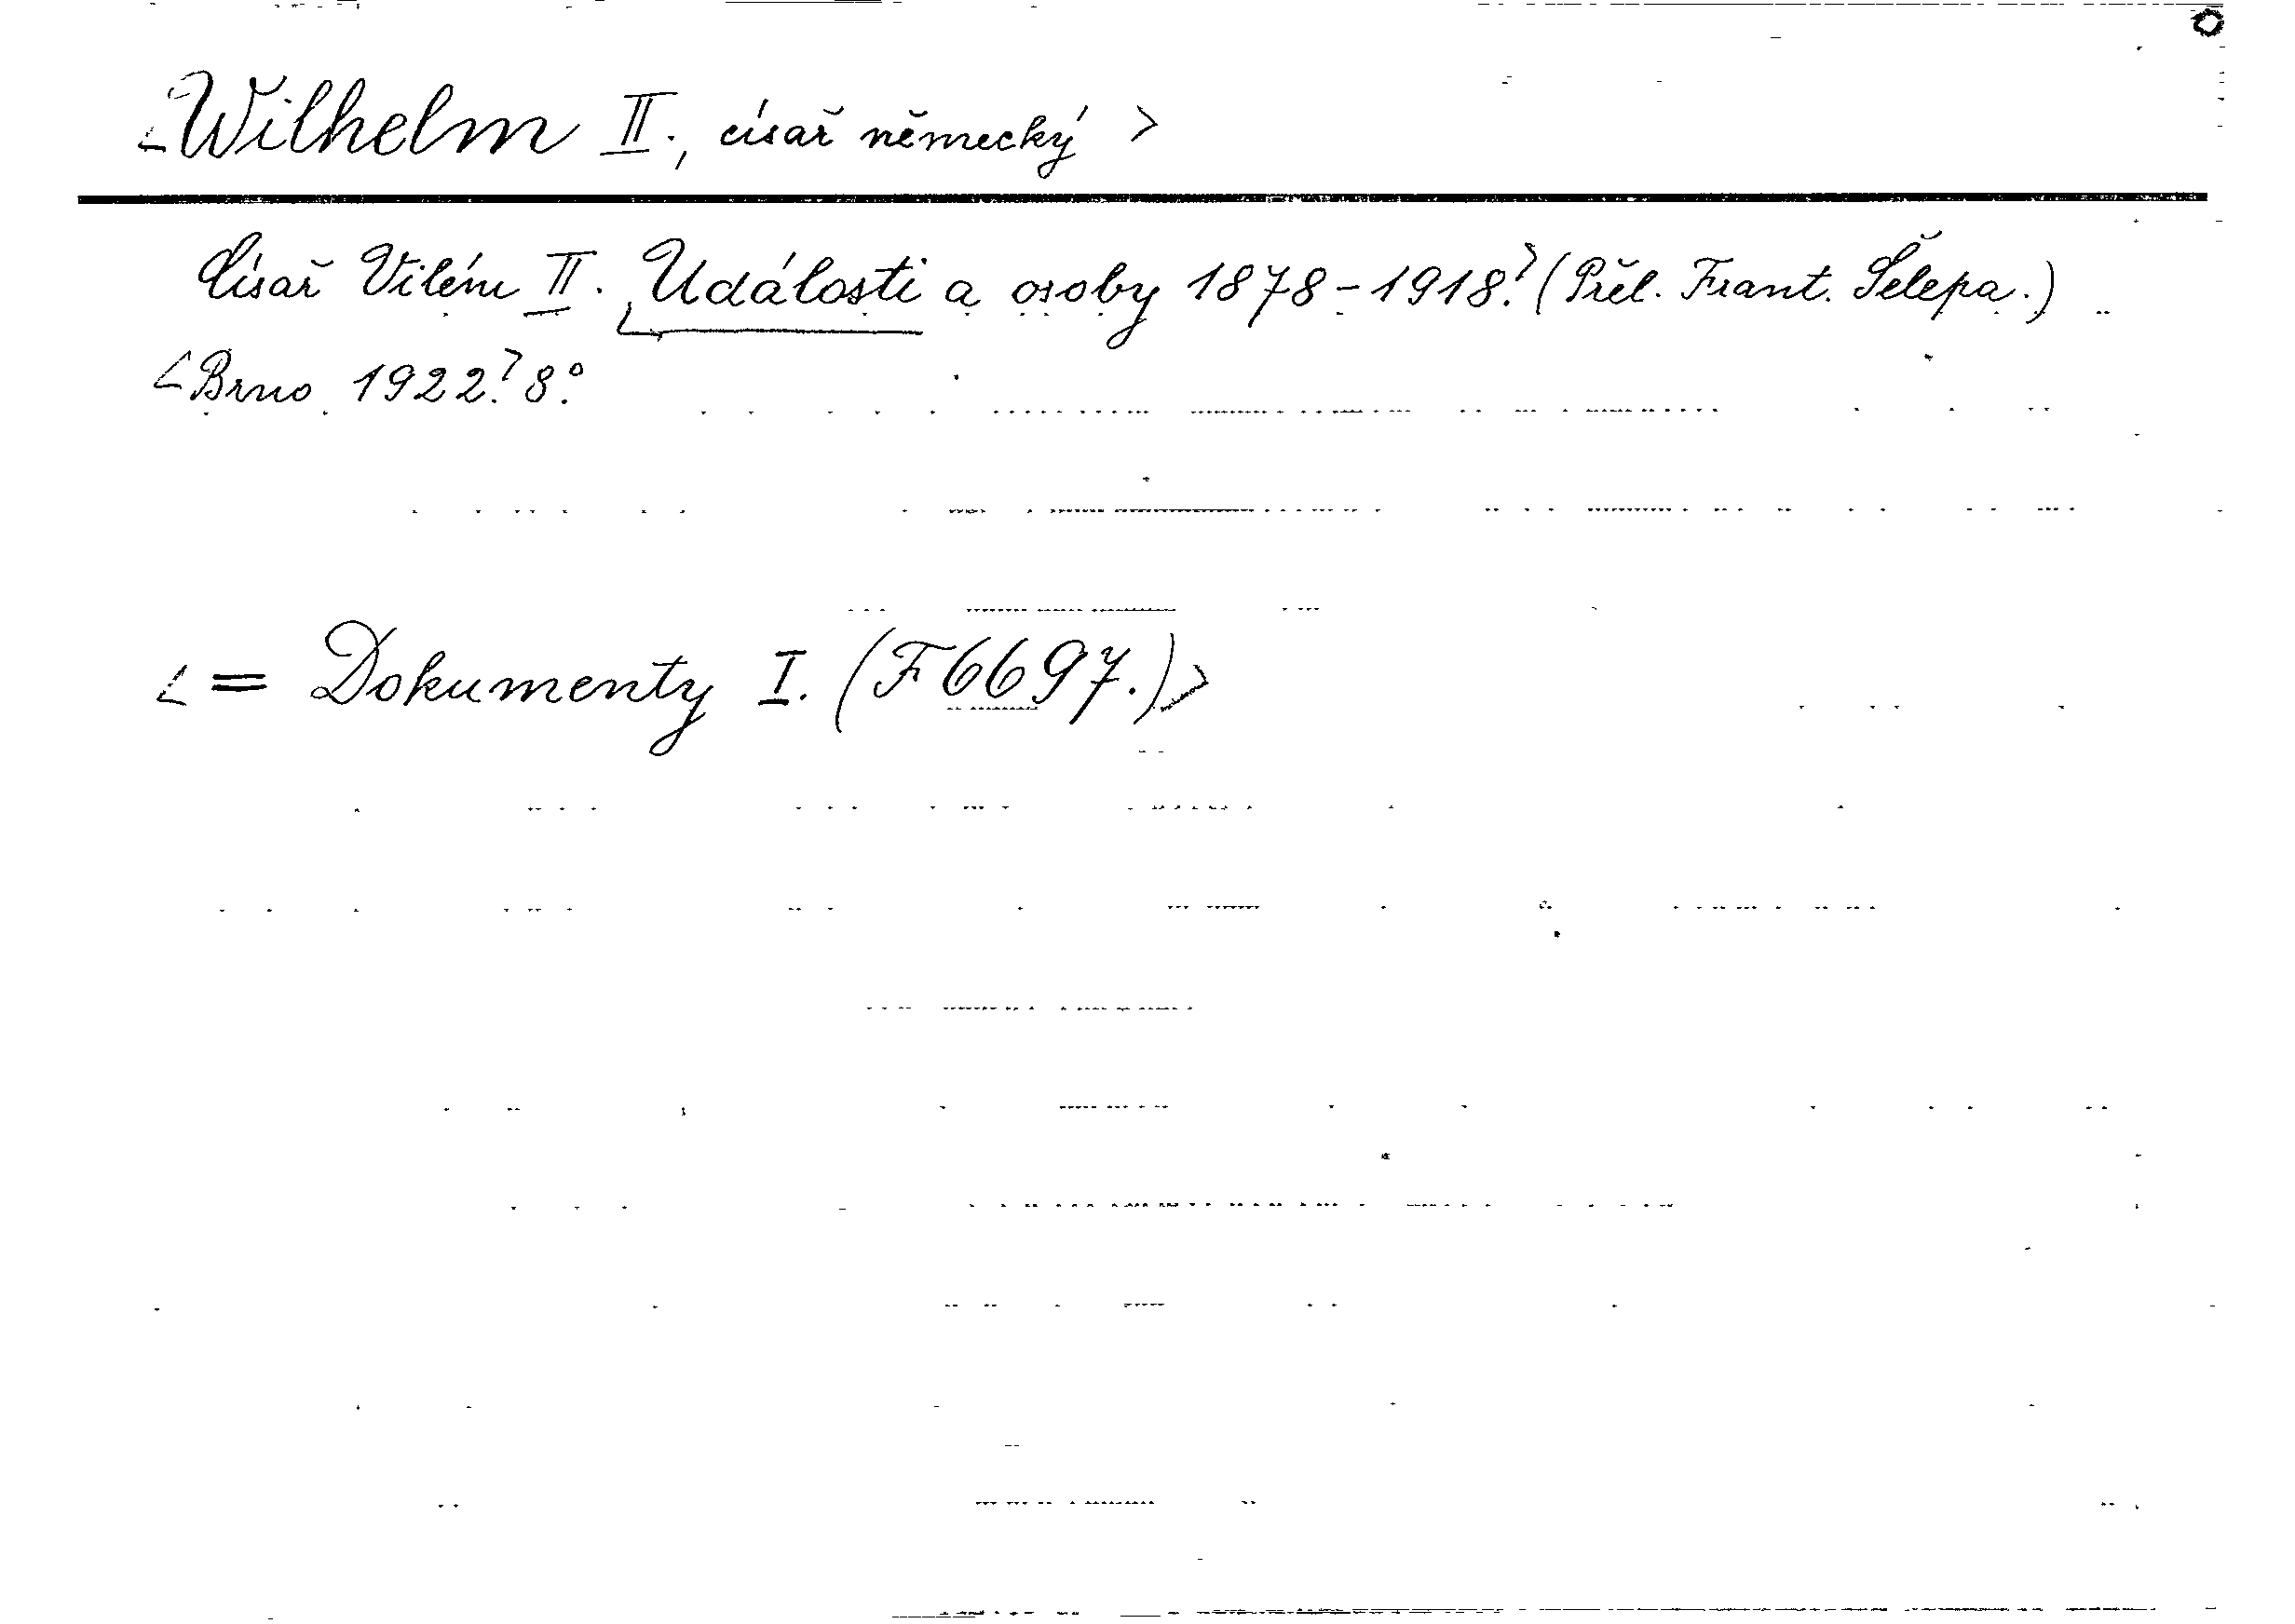 <Wilhelm II., císař německý >
Císař Vilém II. <Události a osoby 1878-1918.> (Přel. Frant. Šelepa.)
<Brno 1922.> 8°.
<= Dokumenty I. (F 6697.)>